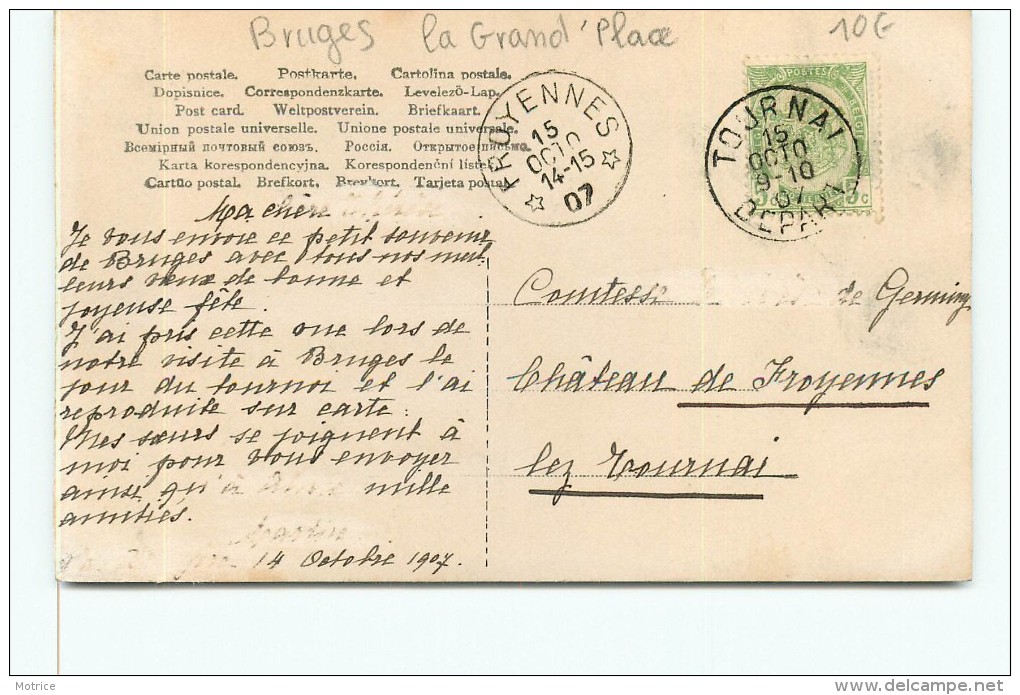 Bruges la Grand'Place
10€
Carte postale. Postkarte. Cartolina postale.
Dopisnice. Correspondenzkarte. Levelező-Lap.
Post card. Weltpostverein. Briefkaart.
Union postale universelle. Unione postale universale.
Всемірный почтовый союзъ. Россія. Открытое письмо.
Karta korespondencyjna. Korespondenční listek.
Cartão postal. Brefkort. Brevkort. Tarjeta postal.
FROYENNES
15
OCTO
14-15
07
TOURNAI
15
OCTO
9-10
07
DEPART
POSTES
5 5c
Ma chère
Je vous envoie ce petit souvenir
de Bruges avec tous nos meil-
leurs vœux de bonne et
joyeuse fête.
J'ai pris cette vue lors de
notre visite à Bruges le
jour du tournoi et l'ai
reproduite sur carte.
Mes sœurs se joignent à
moi pour vous envoyer
ainsi qu'à mille
amitiés.
14 Octobre 1907.
Comtesse de Germiny
Château de Froyennes
lez Tournai
Motrice
delcampe.net